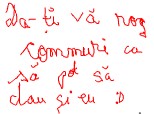 Da-ți vă rog
commuri ca
să pot să
dau și eu :D